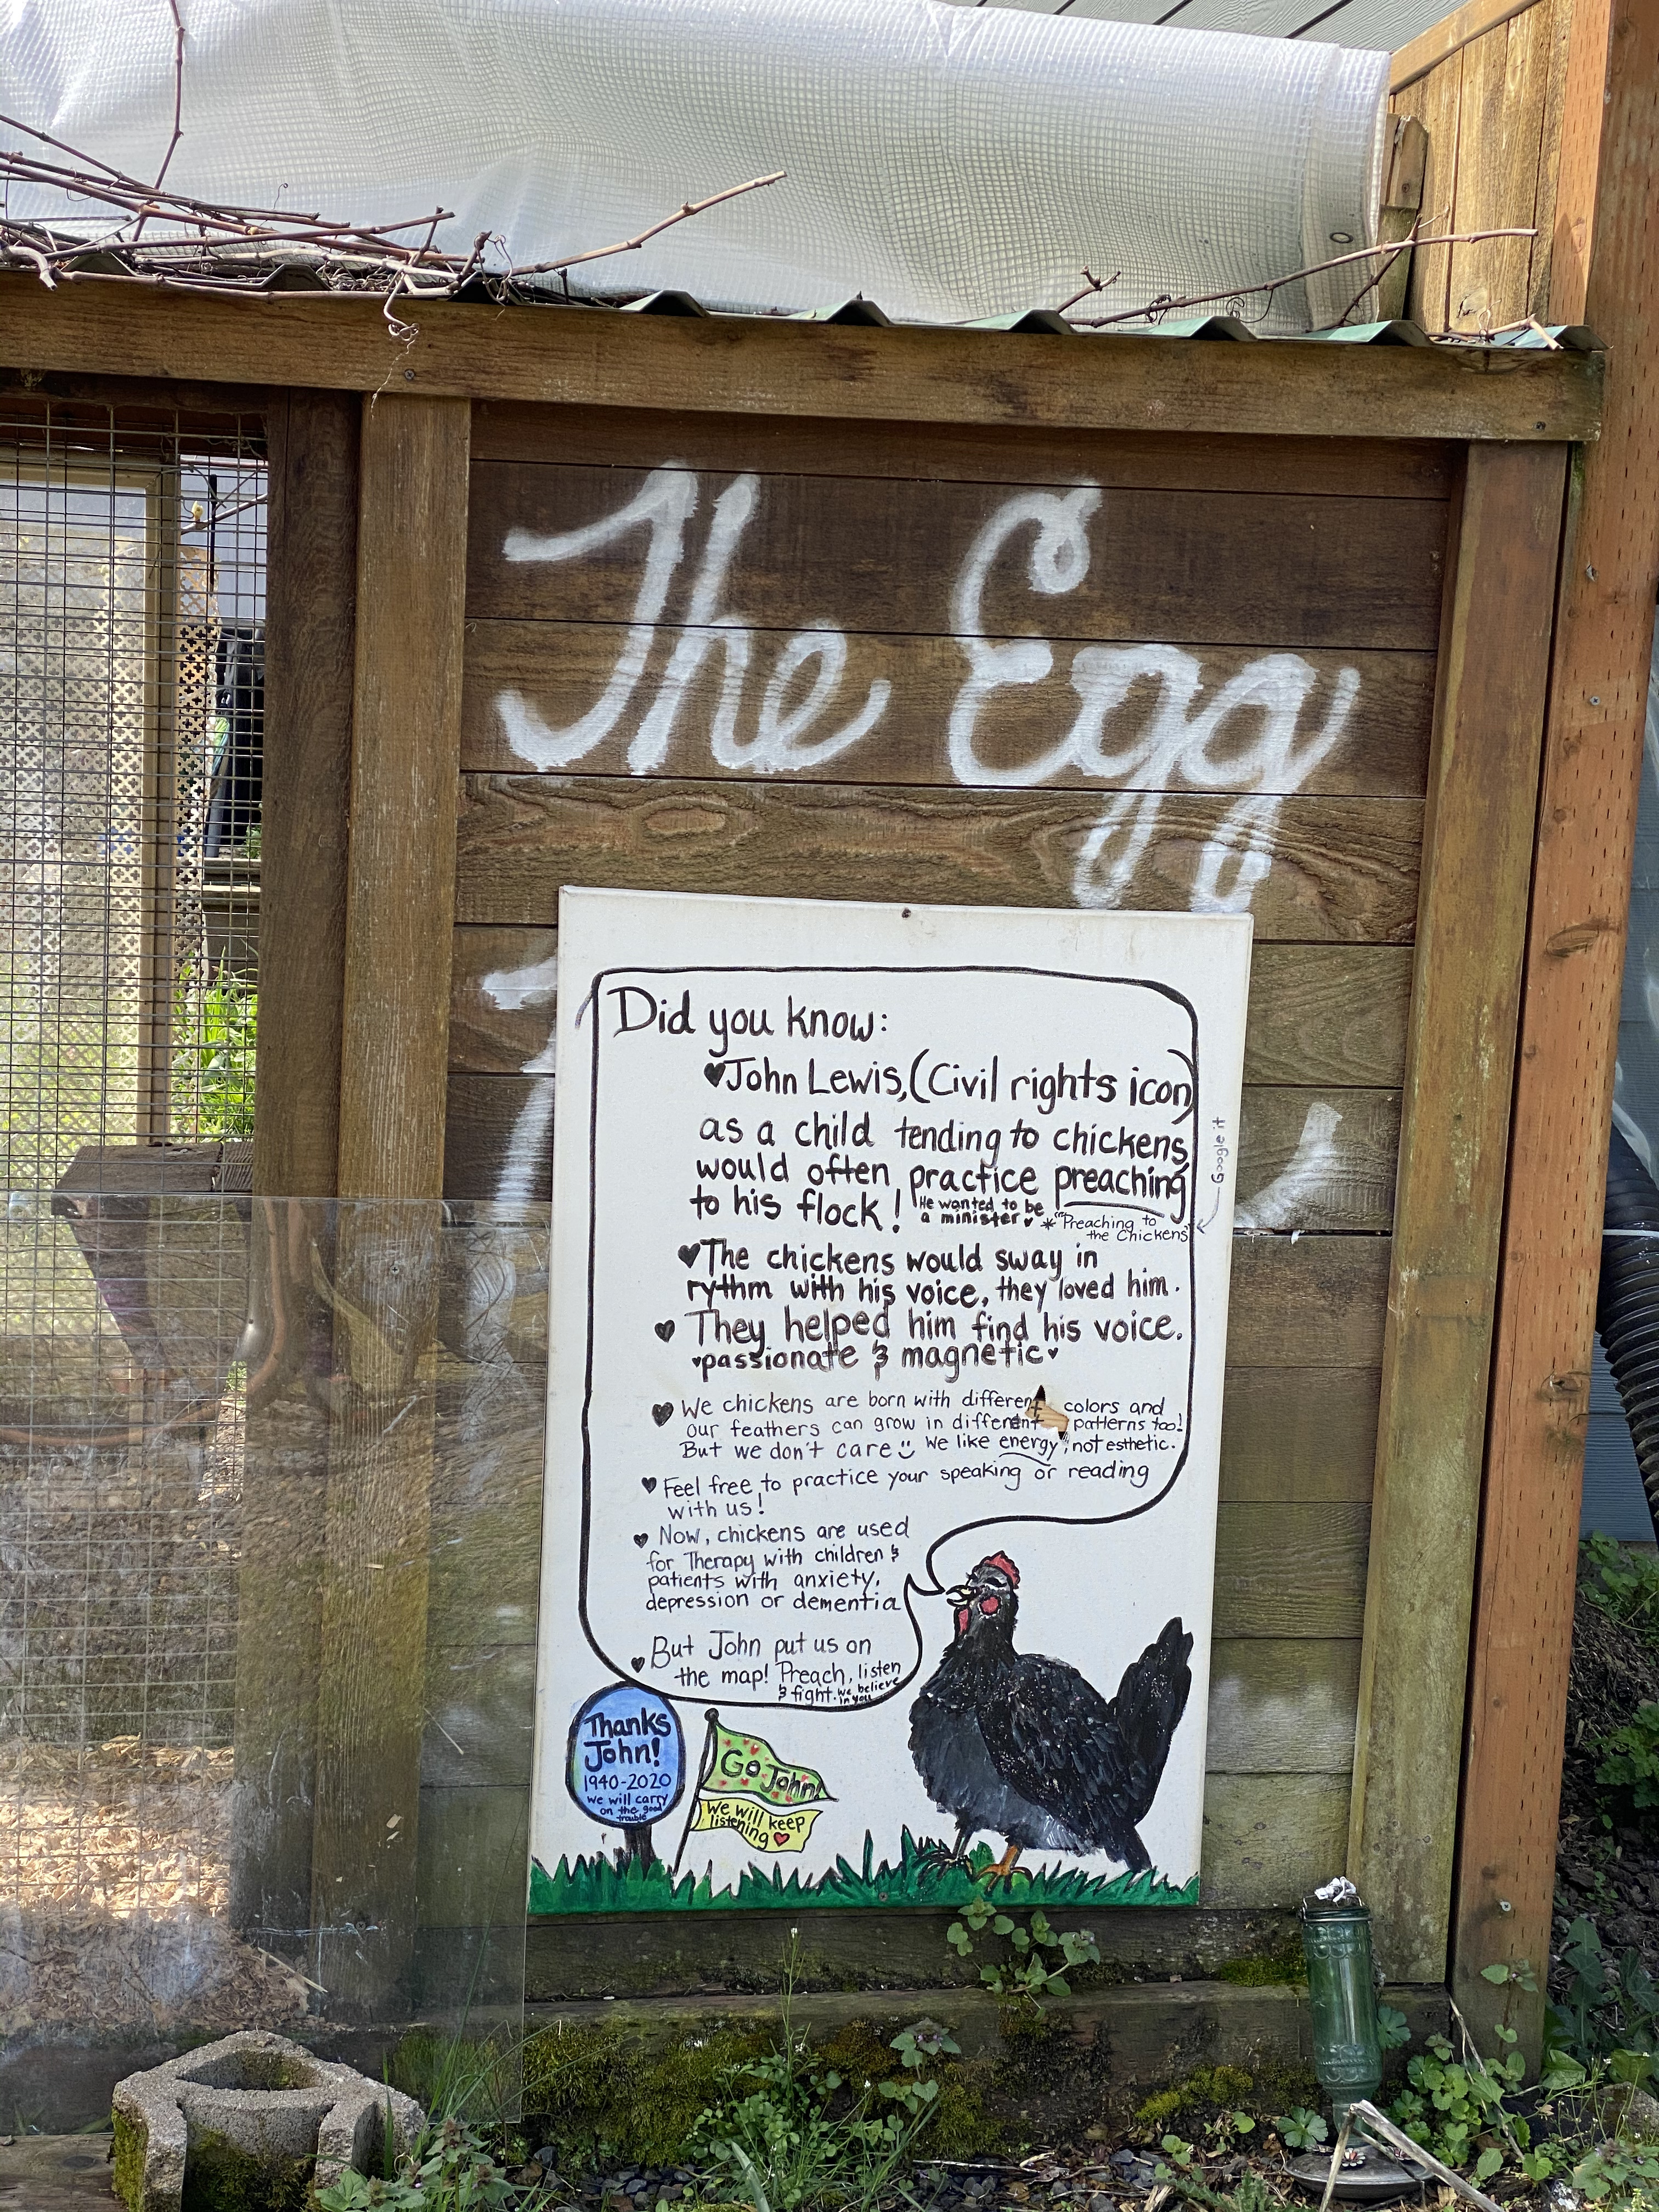 The Egg
Did you know:
♥John Lewis, (Civil rights icon)
as a child tending to chickens
would often practice preaching
to his flock! He wanted to be
a minister ♥ *"Preaching to
the Chickens"
← Google it
♥The chickens would sway in
rythm with his voice, they loved him.
♥ They helped him find his voice.
♥passionate & magnetic♥
♥ We chickens are born with different colors and
our feathers can grow in different patterns too!
But we don't care We like energy, not esthetic.
♥ Feel free to practice your speaking or reading
with us!
♥ Now, chickens are used
for Therapy with children &
patients with anxiety,
depression or dementia
♥ But John put us on
the map! Preach, listen
& fight. We believe
in you
Thanks
John!
1940-2020
We will carry
on the good
trouble
Go John!
We will keep
listening ♥